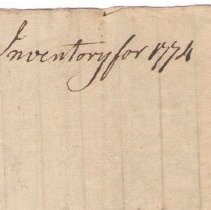 Inventory for 1774